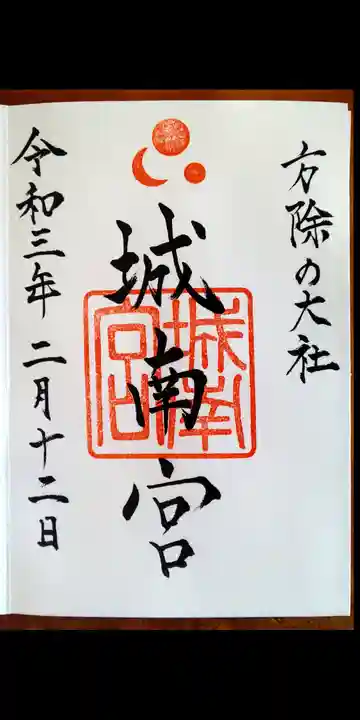 方除の大社
城南宮
城南宮
令和三年二月十二日